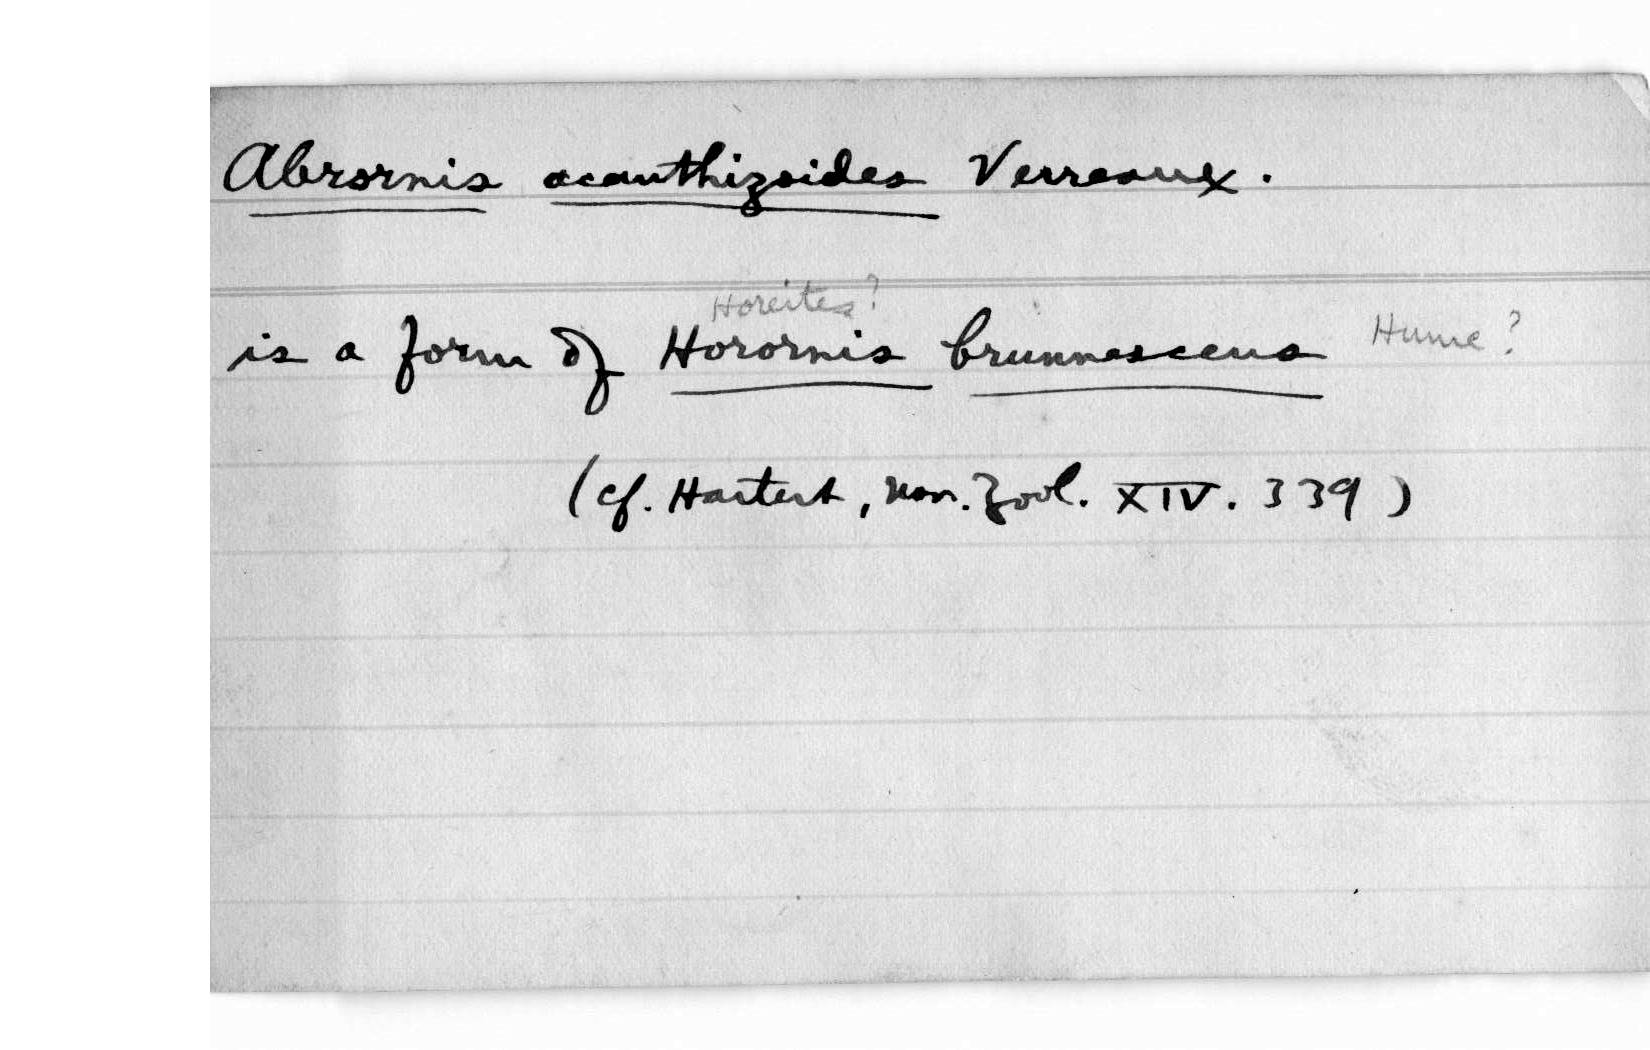 Abrornis acanthizoides Verreaux.
Horeites?
is a form of Horornis brunnescens Hume?
(cf. Hartert, Nov. Zool. XIV. 339)